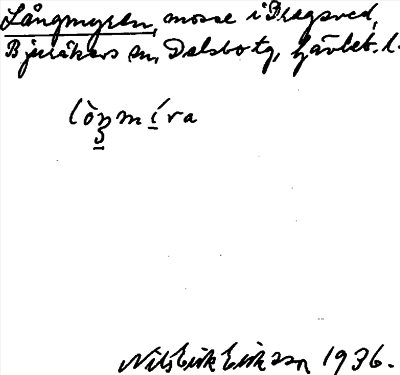 Långmyren, mosse i Dragsved,
Bjuråkers sn, Delsbo tg, Gävleb. l.
lòŋmíra
Nils Erik Eriksson 1936.